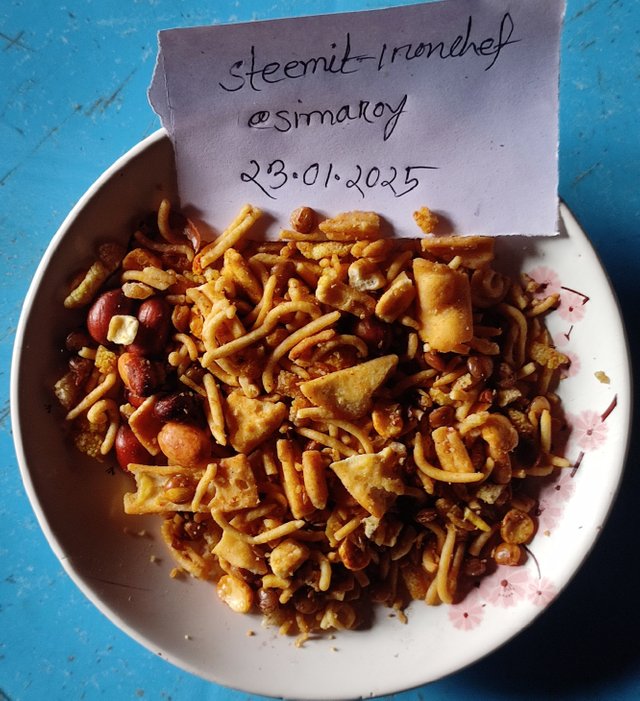 steemit-ironchef
@simaroy
23.01.2025